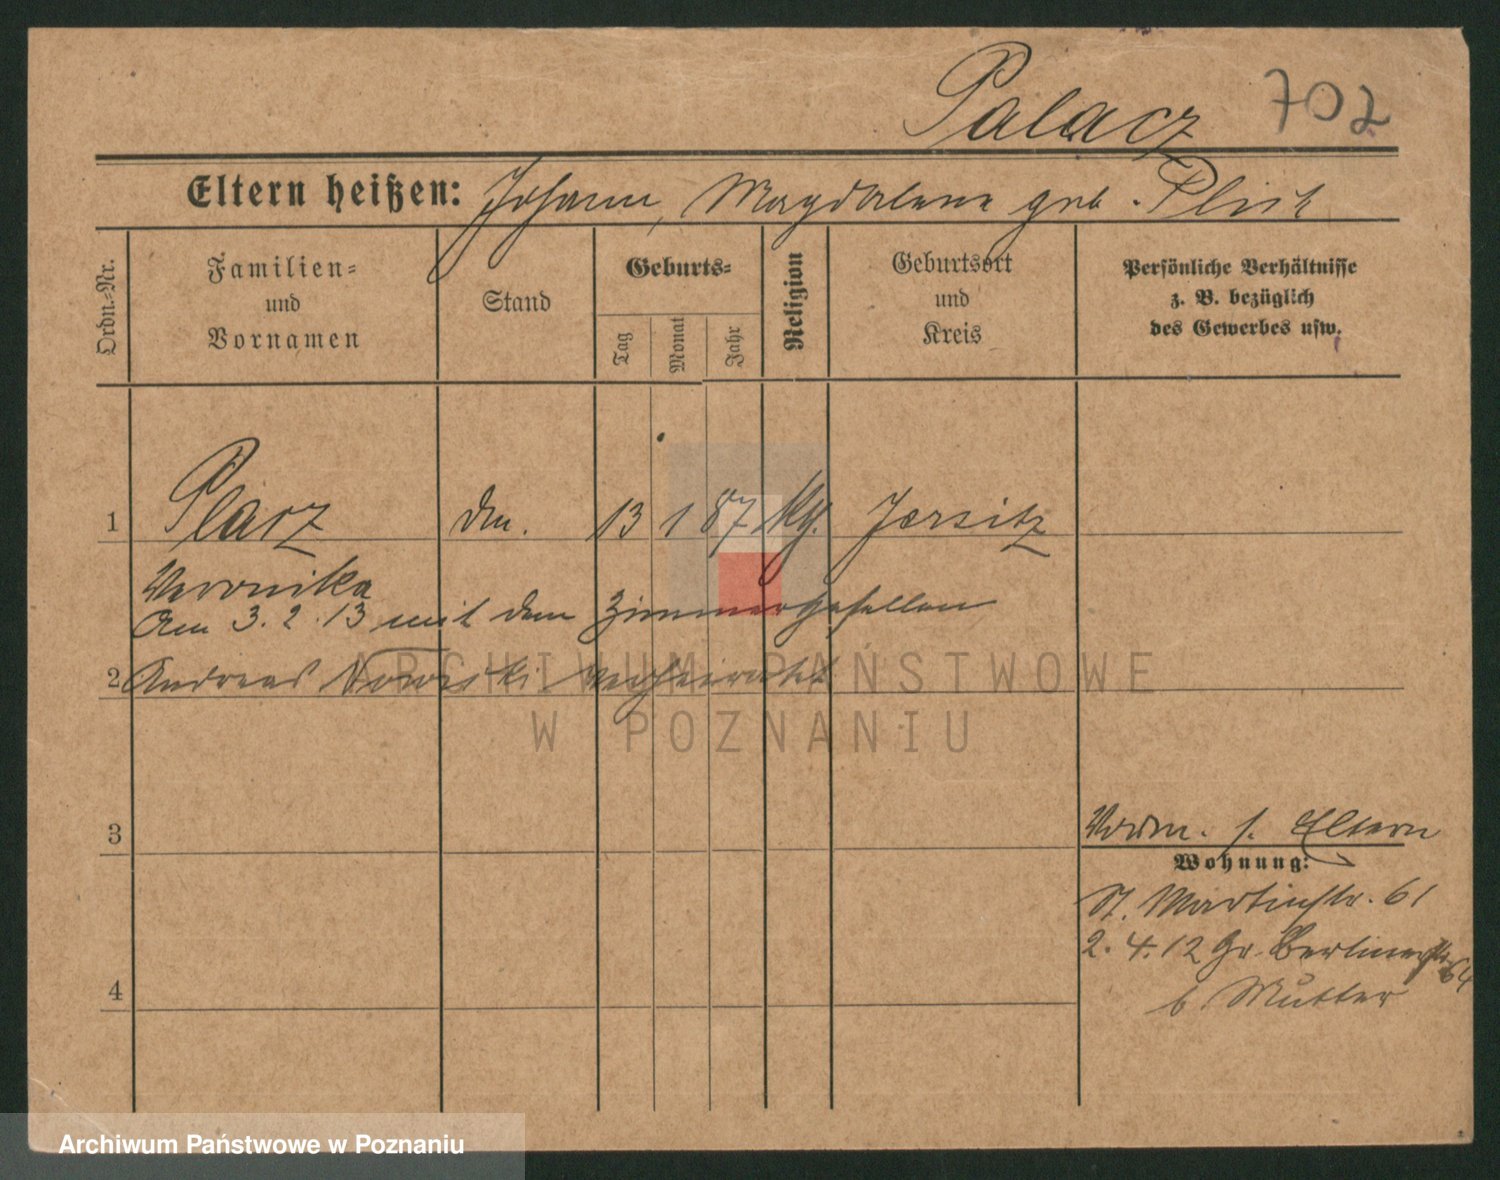 Palacz 702
Eltern heißen: Johann, Magdalene geb.
Ordn.-Nr.
Familien-
und
Vornamen
Stand
Geburts-
Tag
Monat
Jahr
Religion
Geburtsort
und
Kreis
Persönliche Verhältnisse
z. B. bezüglich
des Gewerbes usw.
1 Placz 13 1 87 Jersitz
Veronika
Am 3.2.13 mit dem Zimmergesellen
2 Andreas Nowicki verheiratet
3
4
Vorm. s. Eltern
Wohnung:
St. Martinstr. 61
2.4.12 Gr. Berlinerstr. 64
b. Mutter
ARCHIWUM PAŃSTWOWE
W POZNANIU
Archiwum Państwowe w Poznaniu